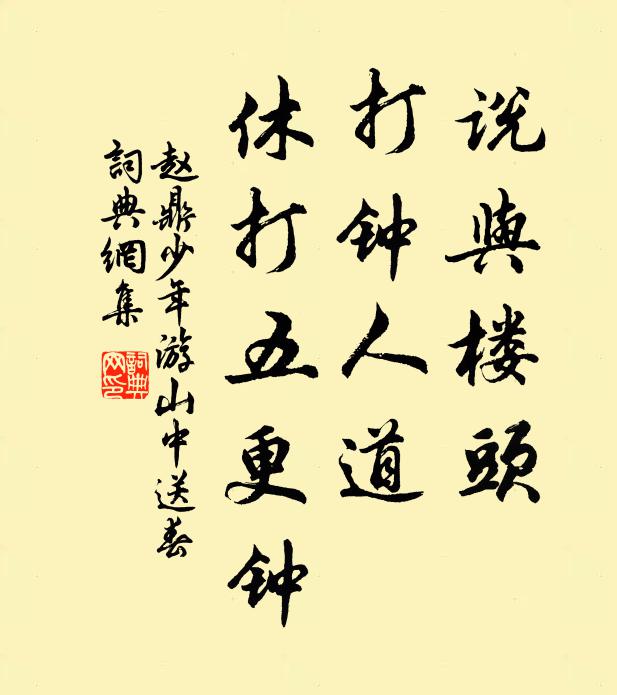 说與楼頭
打钟人道
休打五更钟
赵鼎少年游山中送春
詞典網集
詞典
网印